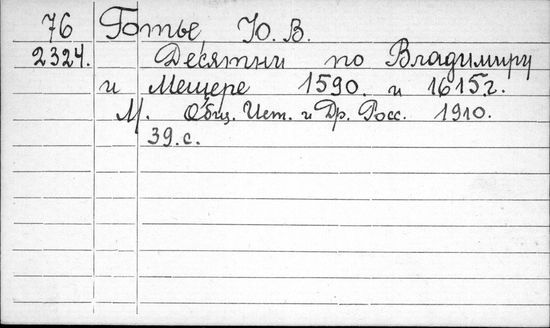 76 Готье, Ю. В.
2324. Десятни по Владимиру
и Мещере 1590. и 1615г.
М. Общ. Ист. и Др. Росс. 1910.
39.с.